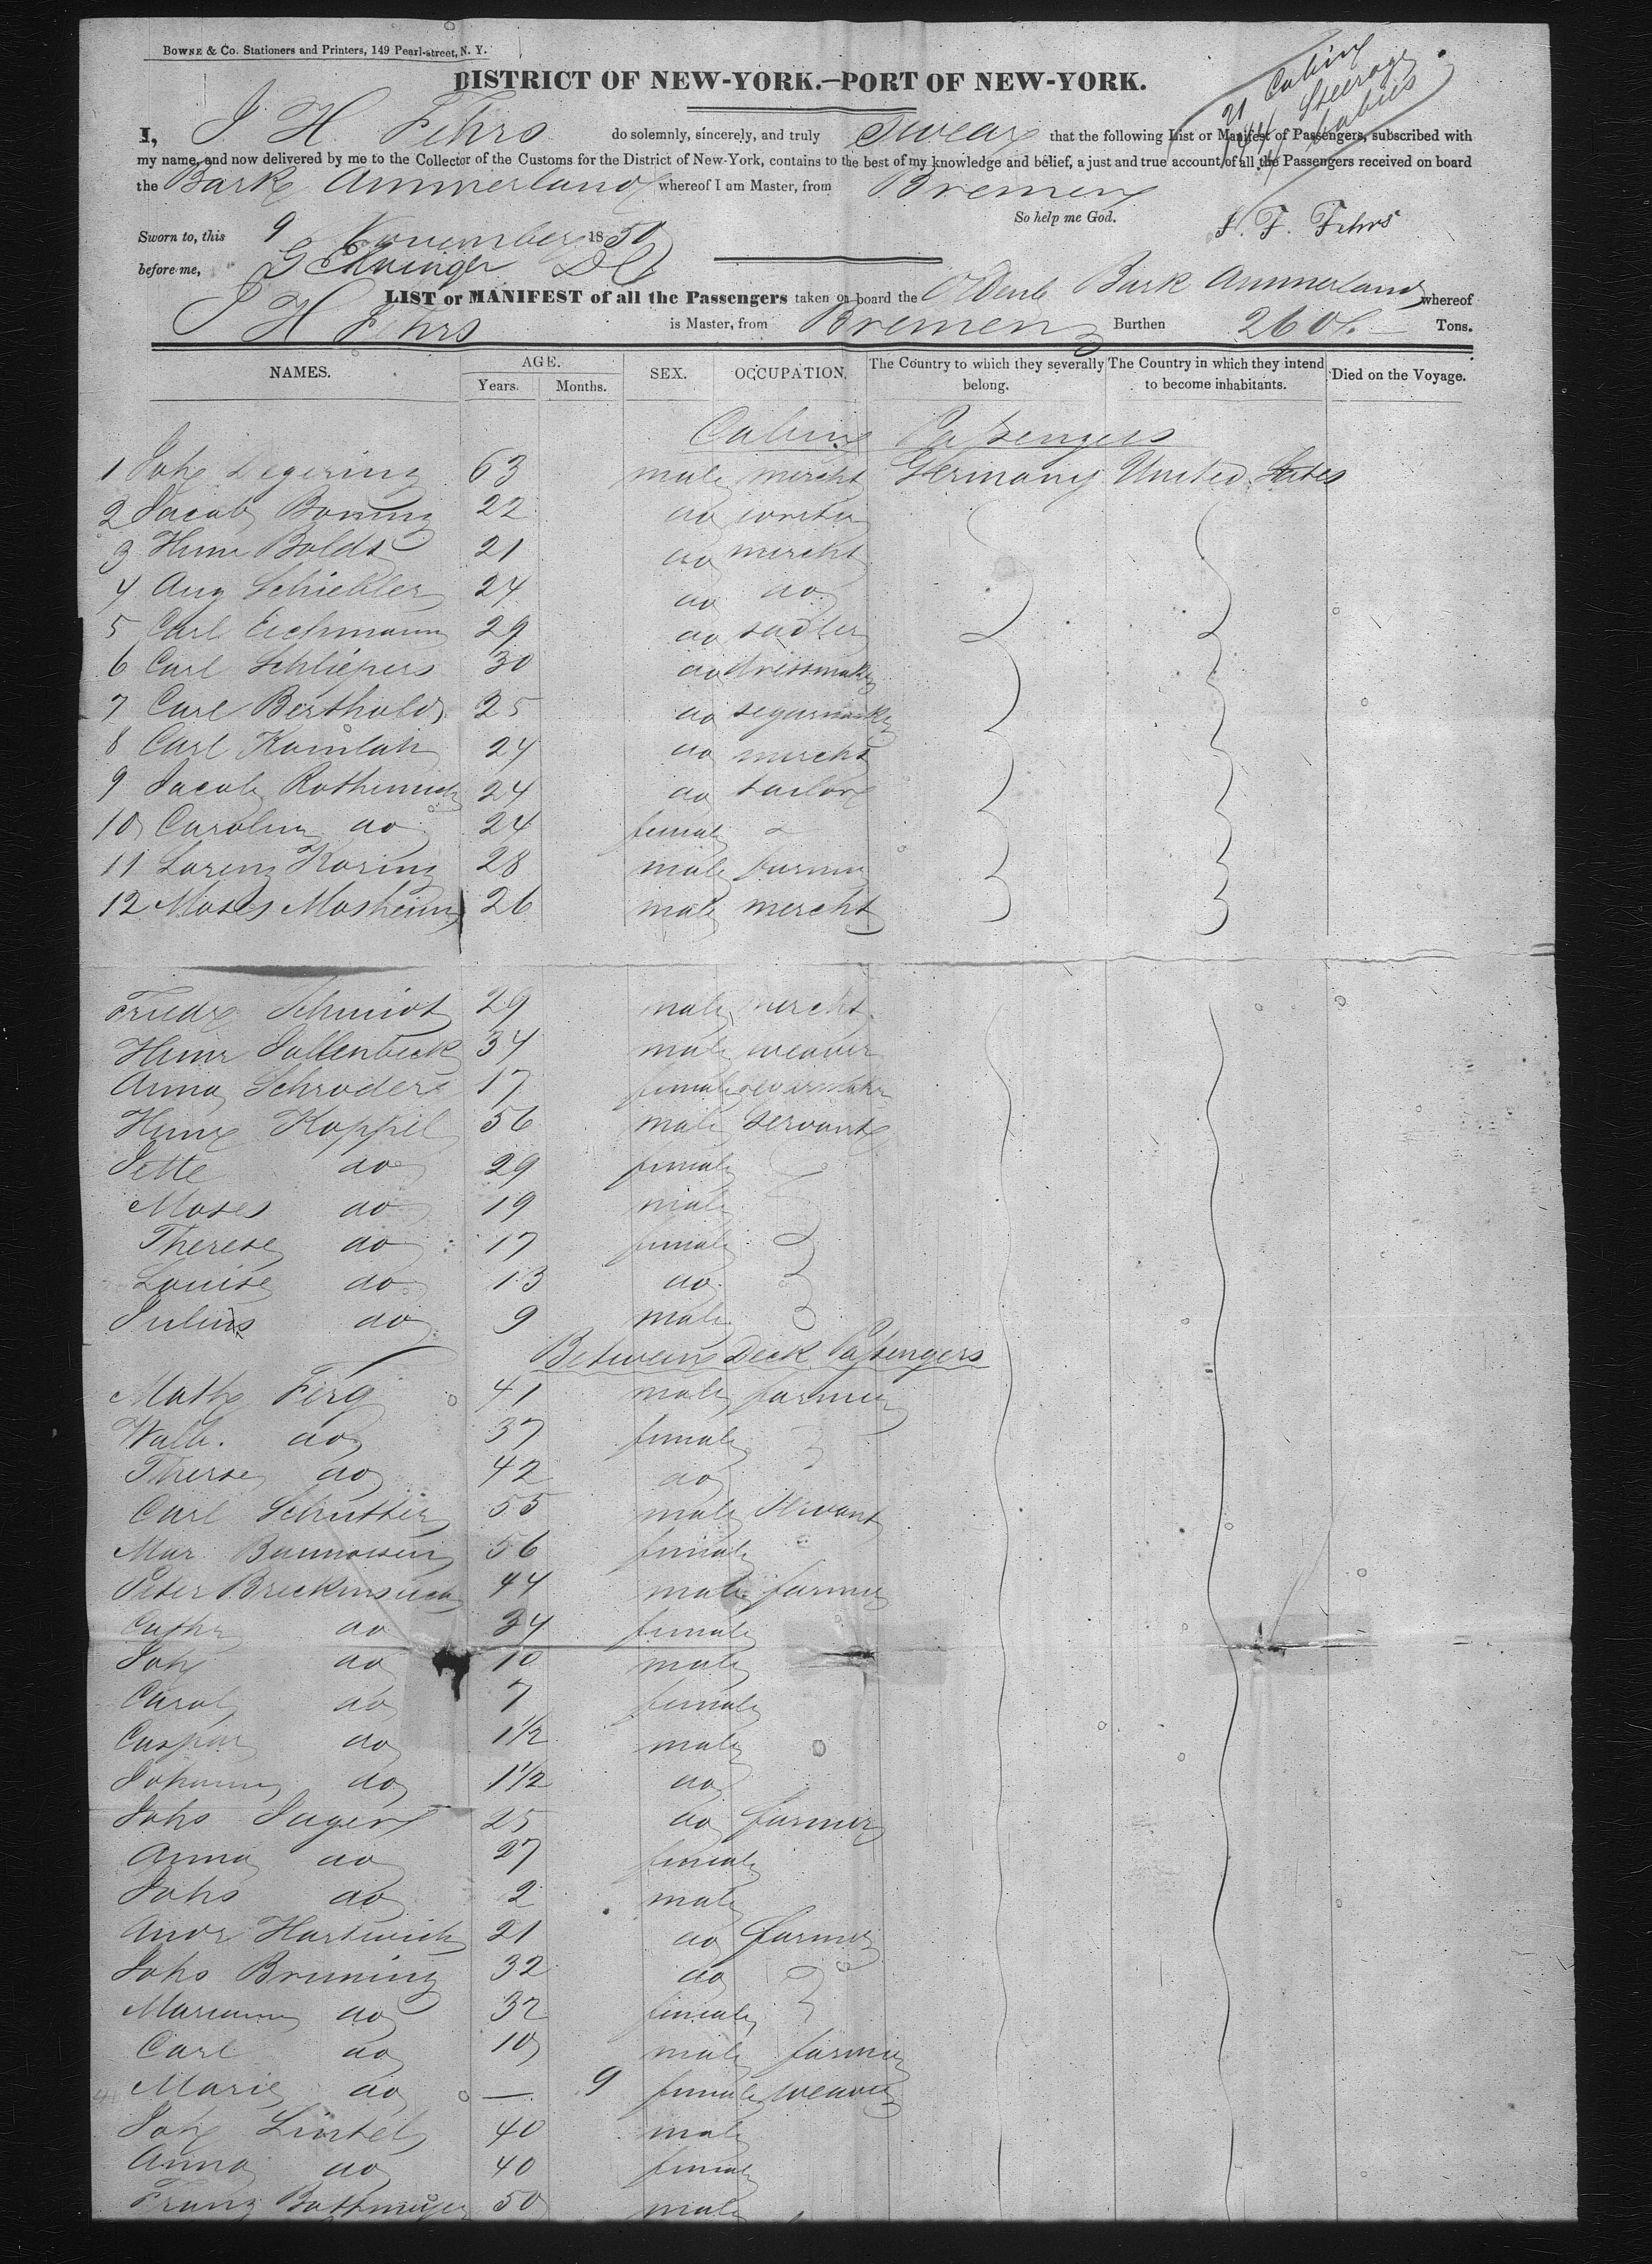 BOWNE & CO. Stationers and Printers, 149 Pearl-street, N. Y.
DISTRICT OF NEW-YORK.—PORT OF NEW-YORK.
21 Cabin
Steerage
babies
I, J H Fehrs do solemnly, sincerely, and truly Swear that the following List or Manifest of Passengers, subscribed with
my name, and now delivered by me to the Collector of the Customs for the District of New-York, contains to the best of my knowledge and belief, a just and true account of all the Passengers received on board
the Bark Ammerland whereof I am Master, from Bremen
So help me God.
Sworn to, this 9 November 1850
before me,
Fehrs
LIST or MANIFEST of all the Passengers taken on board the Oldenb Bark Ammerland whereof
J H Fehrs is Master, from Bremen Burthen 260 Tons.
NAMES. AGE. Years. Months. SEX. OCCUPATION. The Country to which they severally belong. The Country in which they intend to become inhabitants. Died on the Voyage.
Cabin Passengers
1 Joh Degering 63 male mercht Germany United States
2 Jacob 22 do
3 Heinr Bolds 21 do mercht
4 Aug Schiebler 24 do do
5 Carl Eichmann 29 do sadler
6 Carl Schliepers 30 do dressmaker
7 Carl Berthold 25 do segarmaker
8 Carl Kamlah 24 do mercht
9 Jacob 24 do tailor
10 Carolin do 24 female
11 Lorenz Koring 28 male farmer
12 Moses Mosheim 26 male mercht
Friedr Schmidt 29 male mercht
Heinr Sallenbeck 34 male weaver
Anna Schroder 17 female
Heinr Koppel 56 male servant
Jette do 29 female
Moses do 19 male
Therese do 17 female
Louise do 13 do
Julius do 9 male
Between Deck Passengers
Math Ferg 41 male farmer
Walb. do 37 female
Therese do 42 do
Carl Schutter 55 male servant
Mar 56 female
Peter 44 male farmer
Cathr do 34 female
Joh do 10 male
Carol do 7 female
Caspar do 1½ male
Johann do 1½ do
Johs Jager 25 do farmer
Anna do 27 female
Johs do 2 male
Andr Hartwich 21 do farmer
Johs Bruning 32 do
Mariann do 32 female
Carl do 10 male farmer
Marie do — 9 female weaver
Joh Lintel 40 male
Anna do 40 female
Franz Bothmeyer 50 male